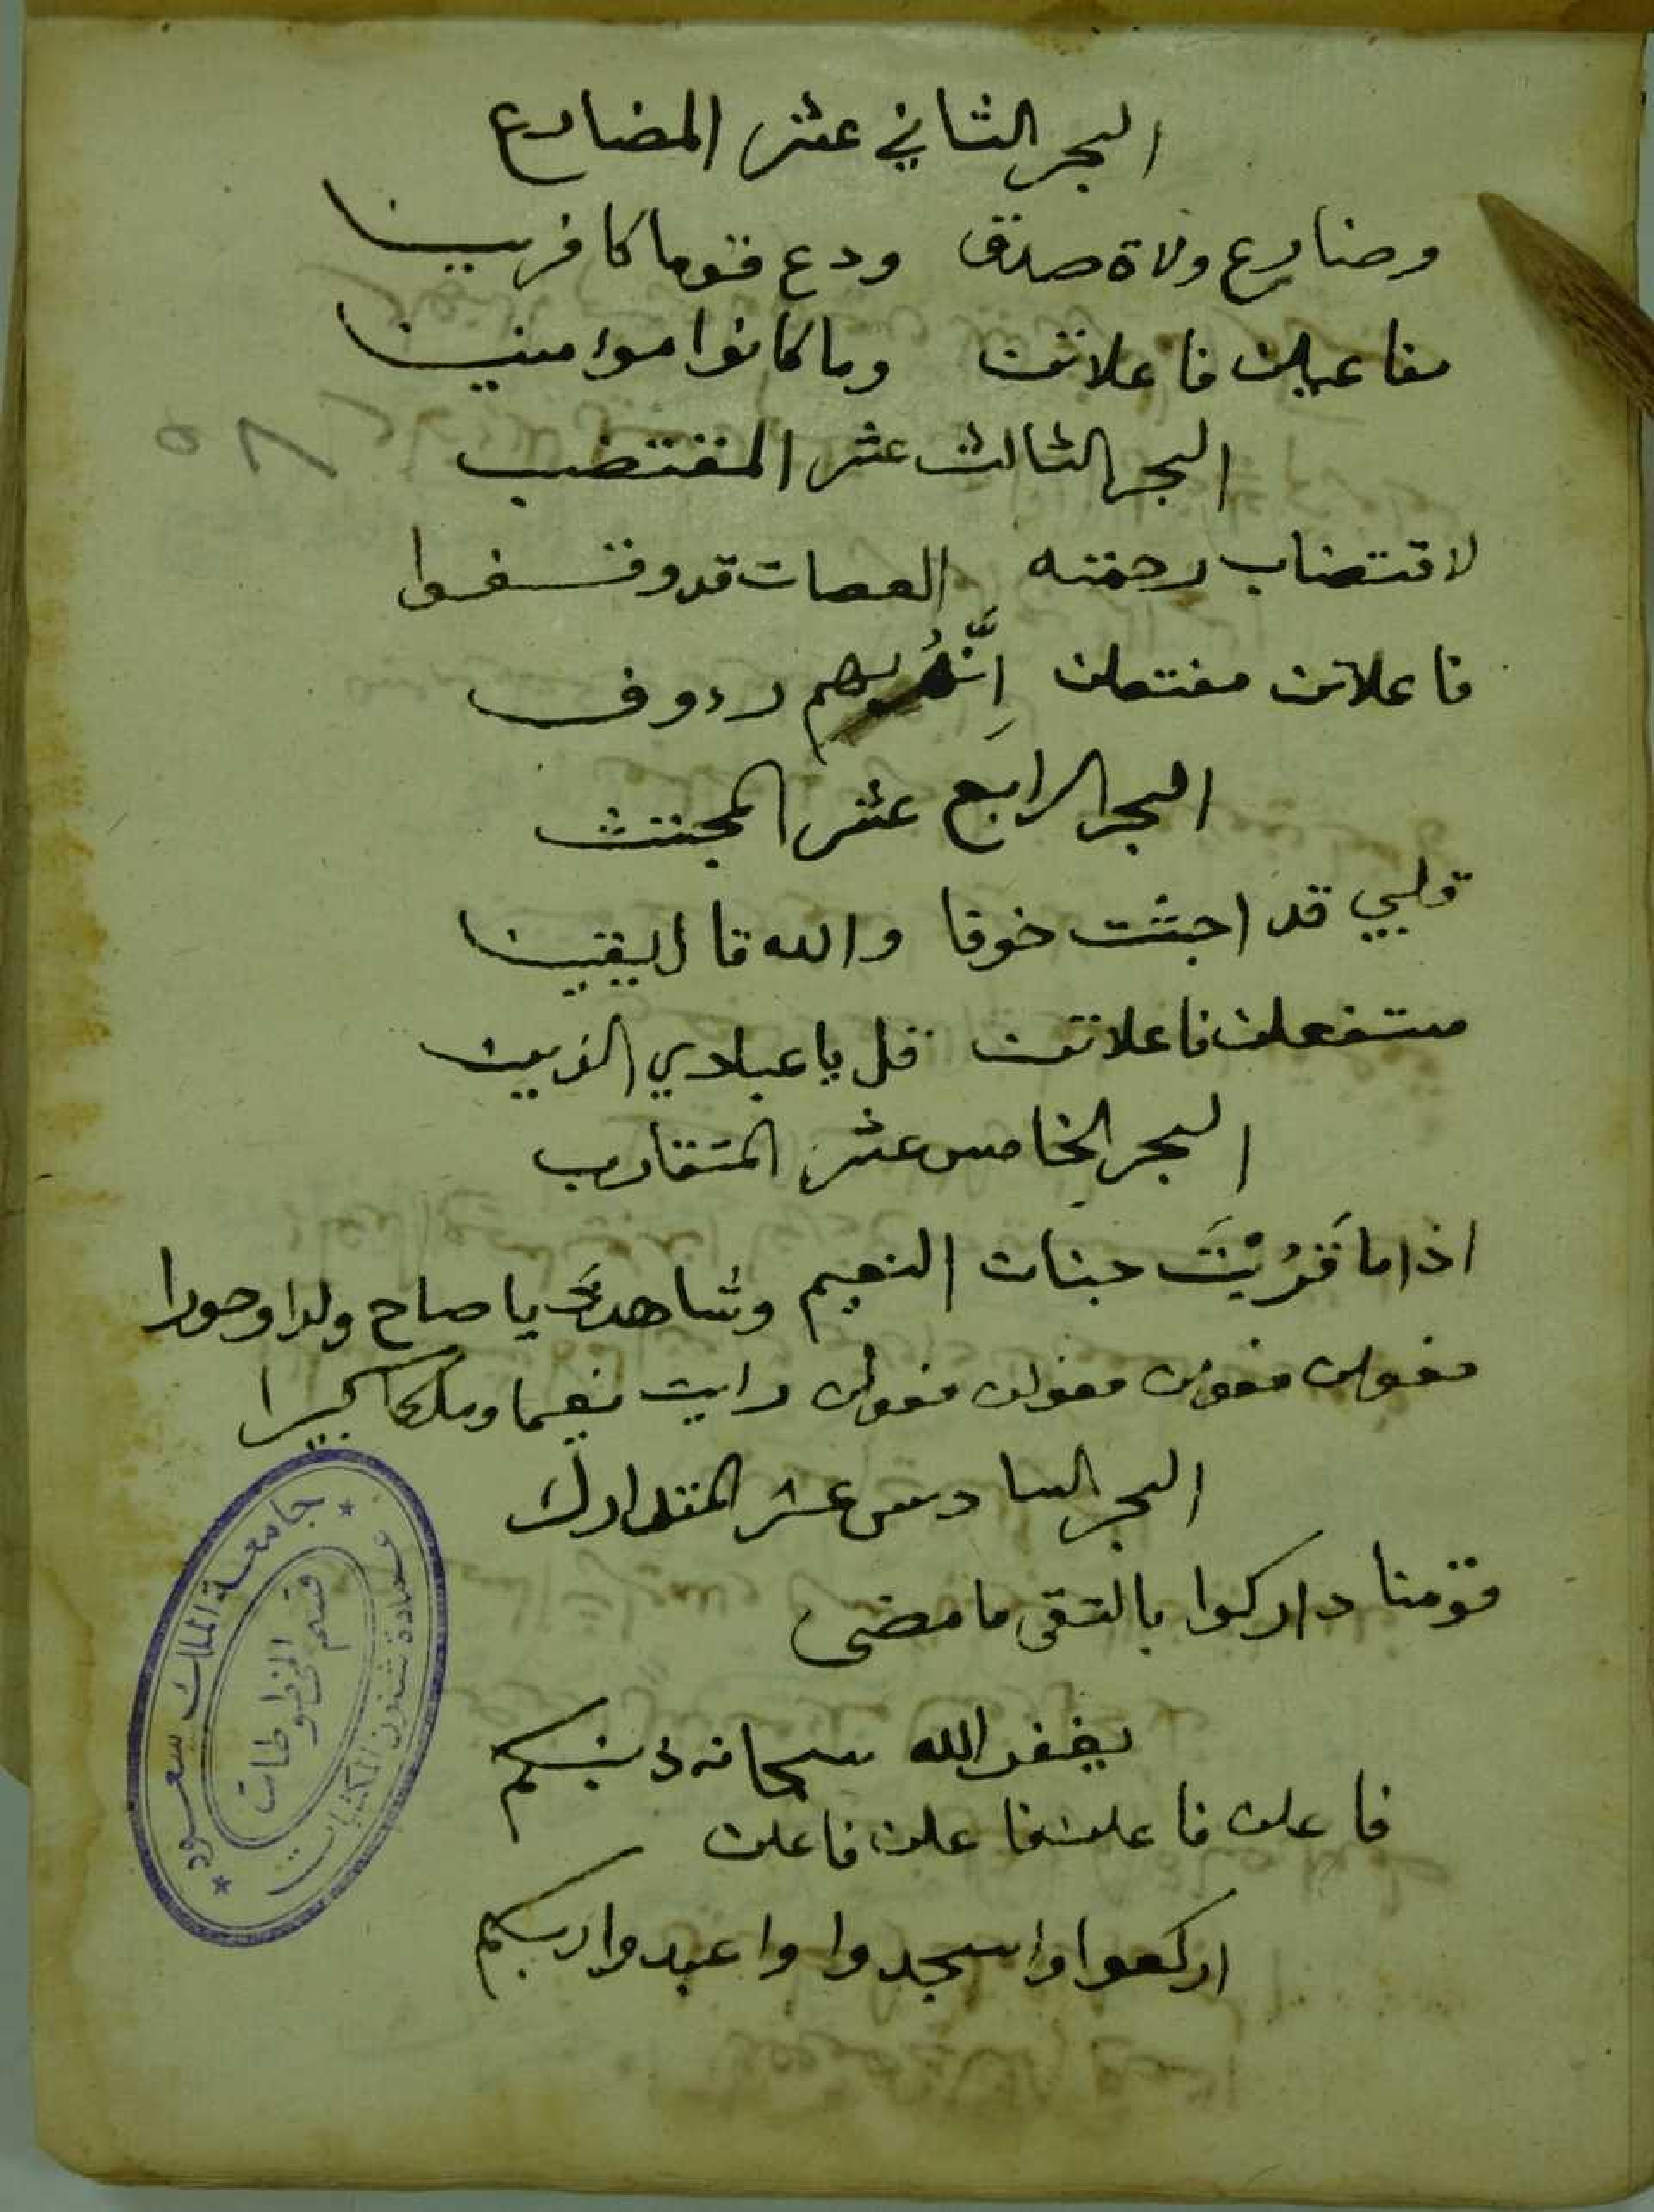 البحر الثاني عشر المضارع
وضارع ولاة صدق ودع قوما كافرينا
مفاعيلن فاعلاتن وما كانوا مؤمنينا
٧٥
البحر الثالث عشر المقتضب
لاقتضاب رحمته العصات قد وقفوا
فاعلاتن مفتعلن إنَّهُ بهم رءوف
البحر الرابع عشر المجتث
قلبي قد اجتث خوفا والله قال يقينا
مستفعلن فاعلاتن قل يا عبادي الذين
البحر الخامس عشر المتقارب
اذا ما قَرُبْتَ جنات النعيم وشاهدتَ يا صاح ولدا وحورا
فعولن فعولن فعولن فعولن رايت نعيما وملكا كبيرا
البحر السادس عشر المتدارك
قومنا داركوا بالتقى ما مضى
يغفر الله سبحانه ذنبكم
فاعلن فاعلن فاعلن فاعلن
اركعوا واسجدوا واعبدوا ربكم
جامعة الملك سعود
عمادة شئون المكتبات
قسم المخطوطات